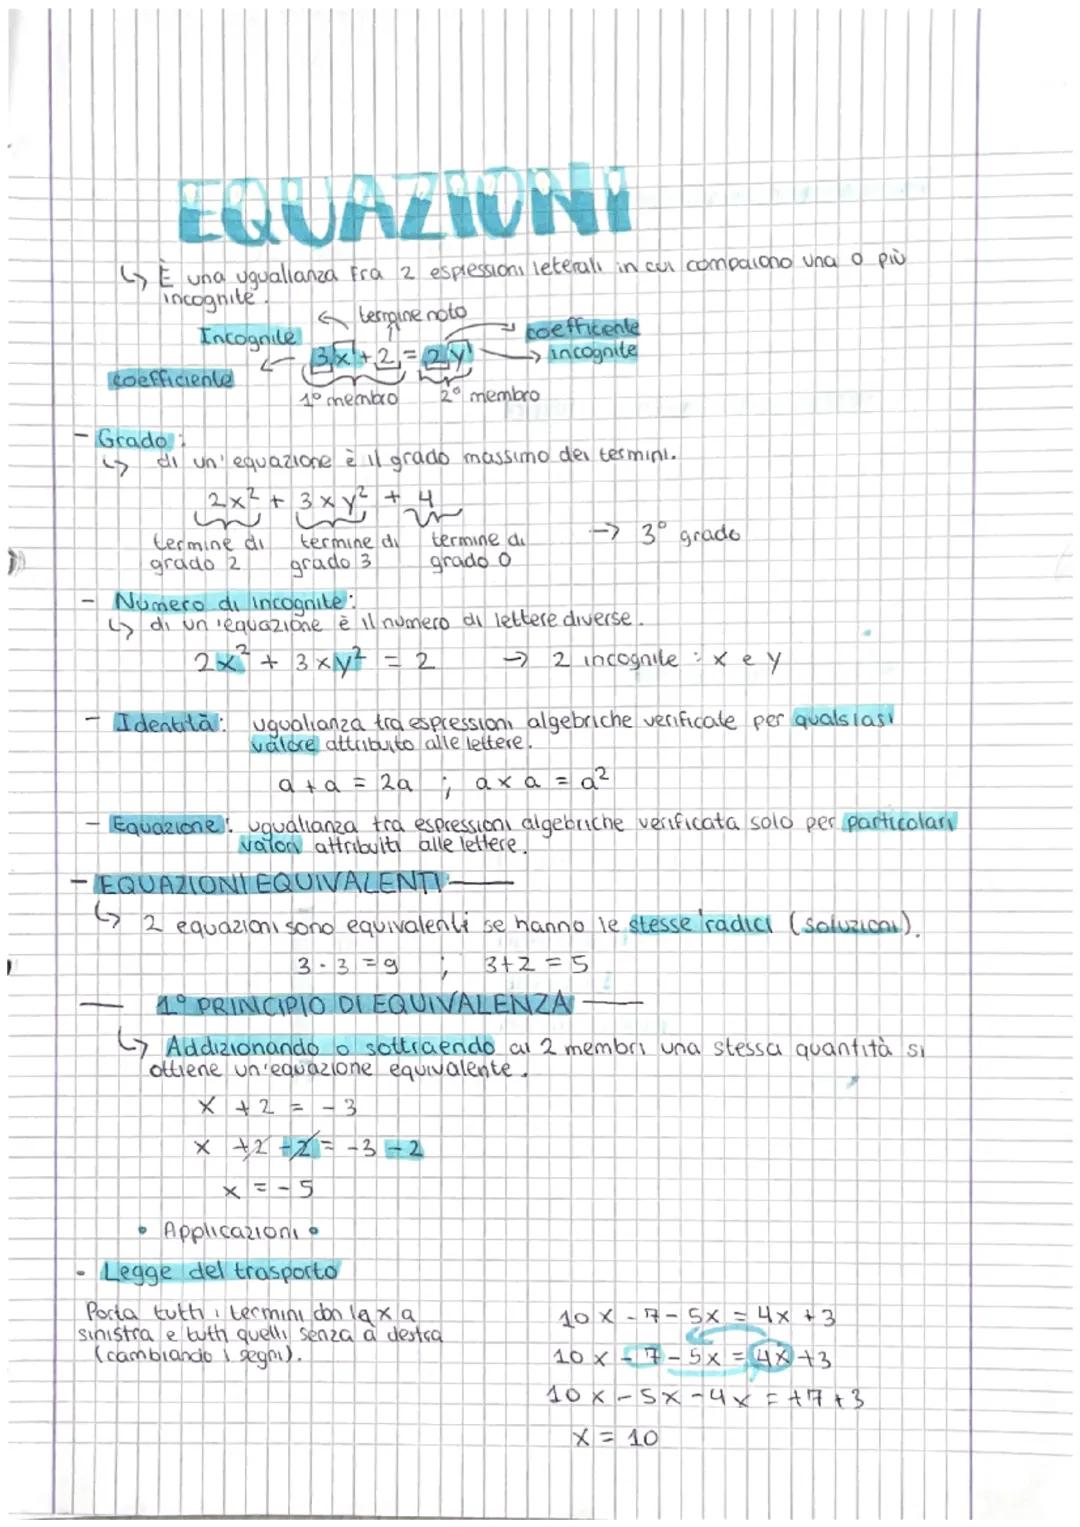 EQUAZIONI
↳ È una uguallanza fra 2 espressioni leterali in cui compaiono una o più
incognite.
termine noto
Incognite
coefficente
3x + 2 = 2y
incognite
coefficiente
1° membro 2° membro
- Grado:
↳ di un'equazione è il grado massimo dei termini.
2x² + 3xy² + 4
termine di termine di termine di → 3° grado
grado 2 grado 3 grado 0
- Numero di incognite:
↳ di un'equazione è il numero di lettere diverse.
2x² + 3xy² = 2 → 2 incognite: x e y
- Identità: uguallanza tra espressioni algebriche verificate per qualsiasi
valore attribuito alle lettere.
a + a = 2a ; a x a = a²
- Equazione: uguallanza tra espressioni algebriche verificata solo per particolari
valori attribuiti alle lettere.
- EQUAZIONI EQUIVALENTI
↳ 2 equazioni sono equivalenti se hanno le stesse radici (soluzioni).
3 · 3 = 9 ; 3+2 = 5
1° PRINCIPIO DI EQUIVALENZA
↳ Addizionando o sottraendo ai 2 membri una stessa quantità si
ottiene un'equazione equivalente.
x + 2 = - 3
x +2 -2 = -3 - 2
x = - 5
• Applicazioni •
• Legge del trasporto
Porta tutti i termini con la x a
sinistra e tutti quelli senza a destra
(cambiando i segni).
10 x - 7 - 5x = 4x + 3
10 x - 7 - 5x = 4x + 3
10 x - 5x - 4x = +7 + 3
x = 10